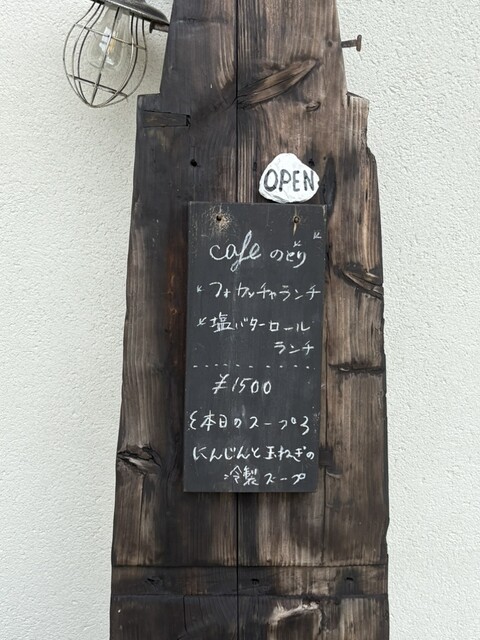 OPEN
cafe のどり
フォカッチャランチ
塩バターロール
ランチ
¥1500
{本日のスープ}
にんじんと玉ねぎの
冷製スープ